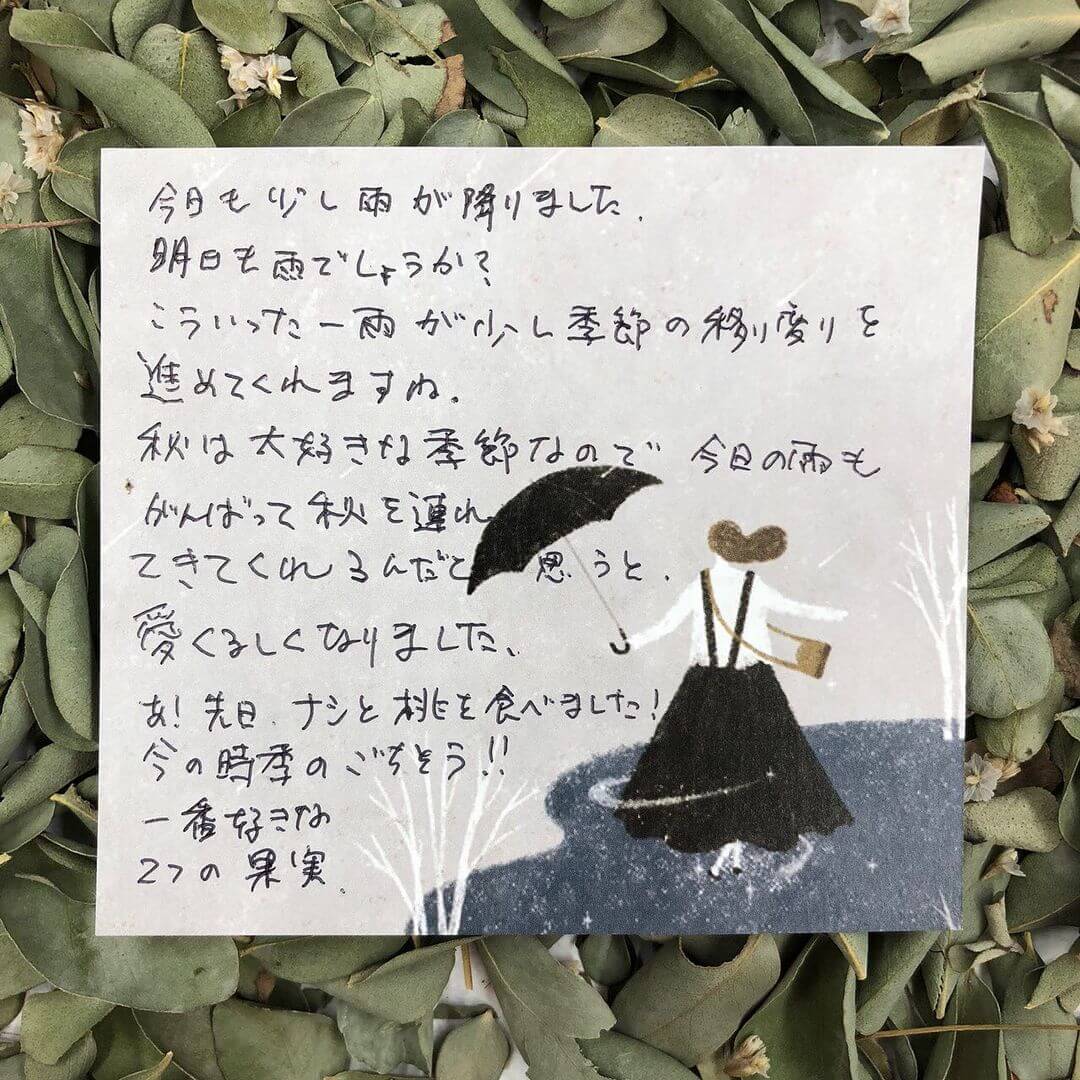 今日も少し雨が降りました.
明日も雨でしょうか?
こういった一雨が少し季節の移り変りを
進めてくれますね.
秋は大好きな季節なので 今日の雨も
がんばって秋を連れ
てきてくれるんだと 思うと.
愛くるしくなりました.
あ!先日.ナシと桃を食べました!
今の時季のごちそう!!
一番好きな
2つの果実.